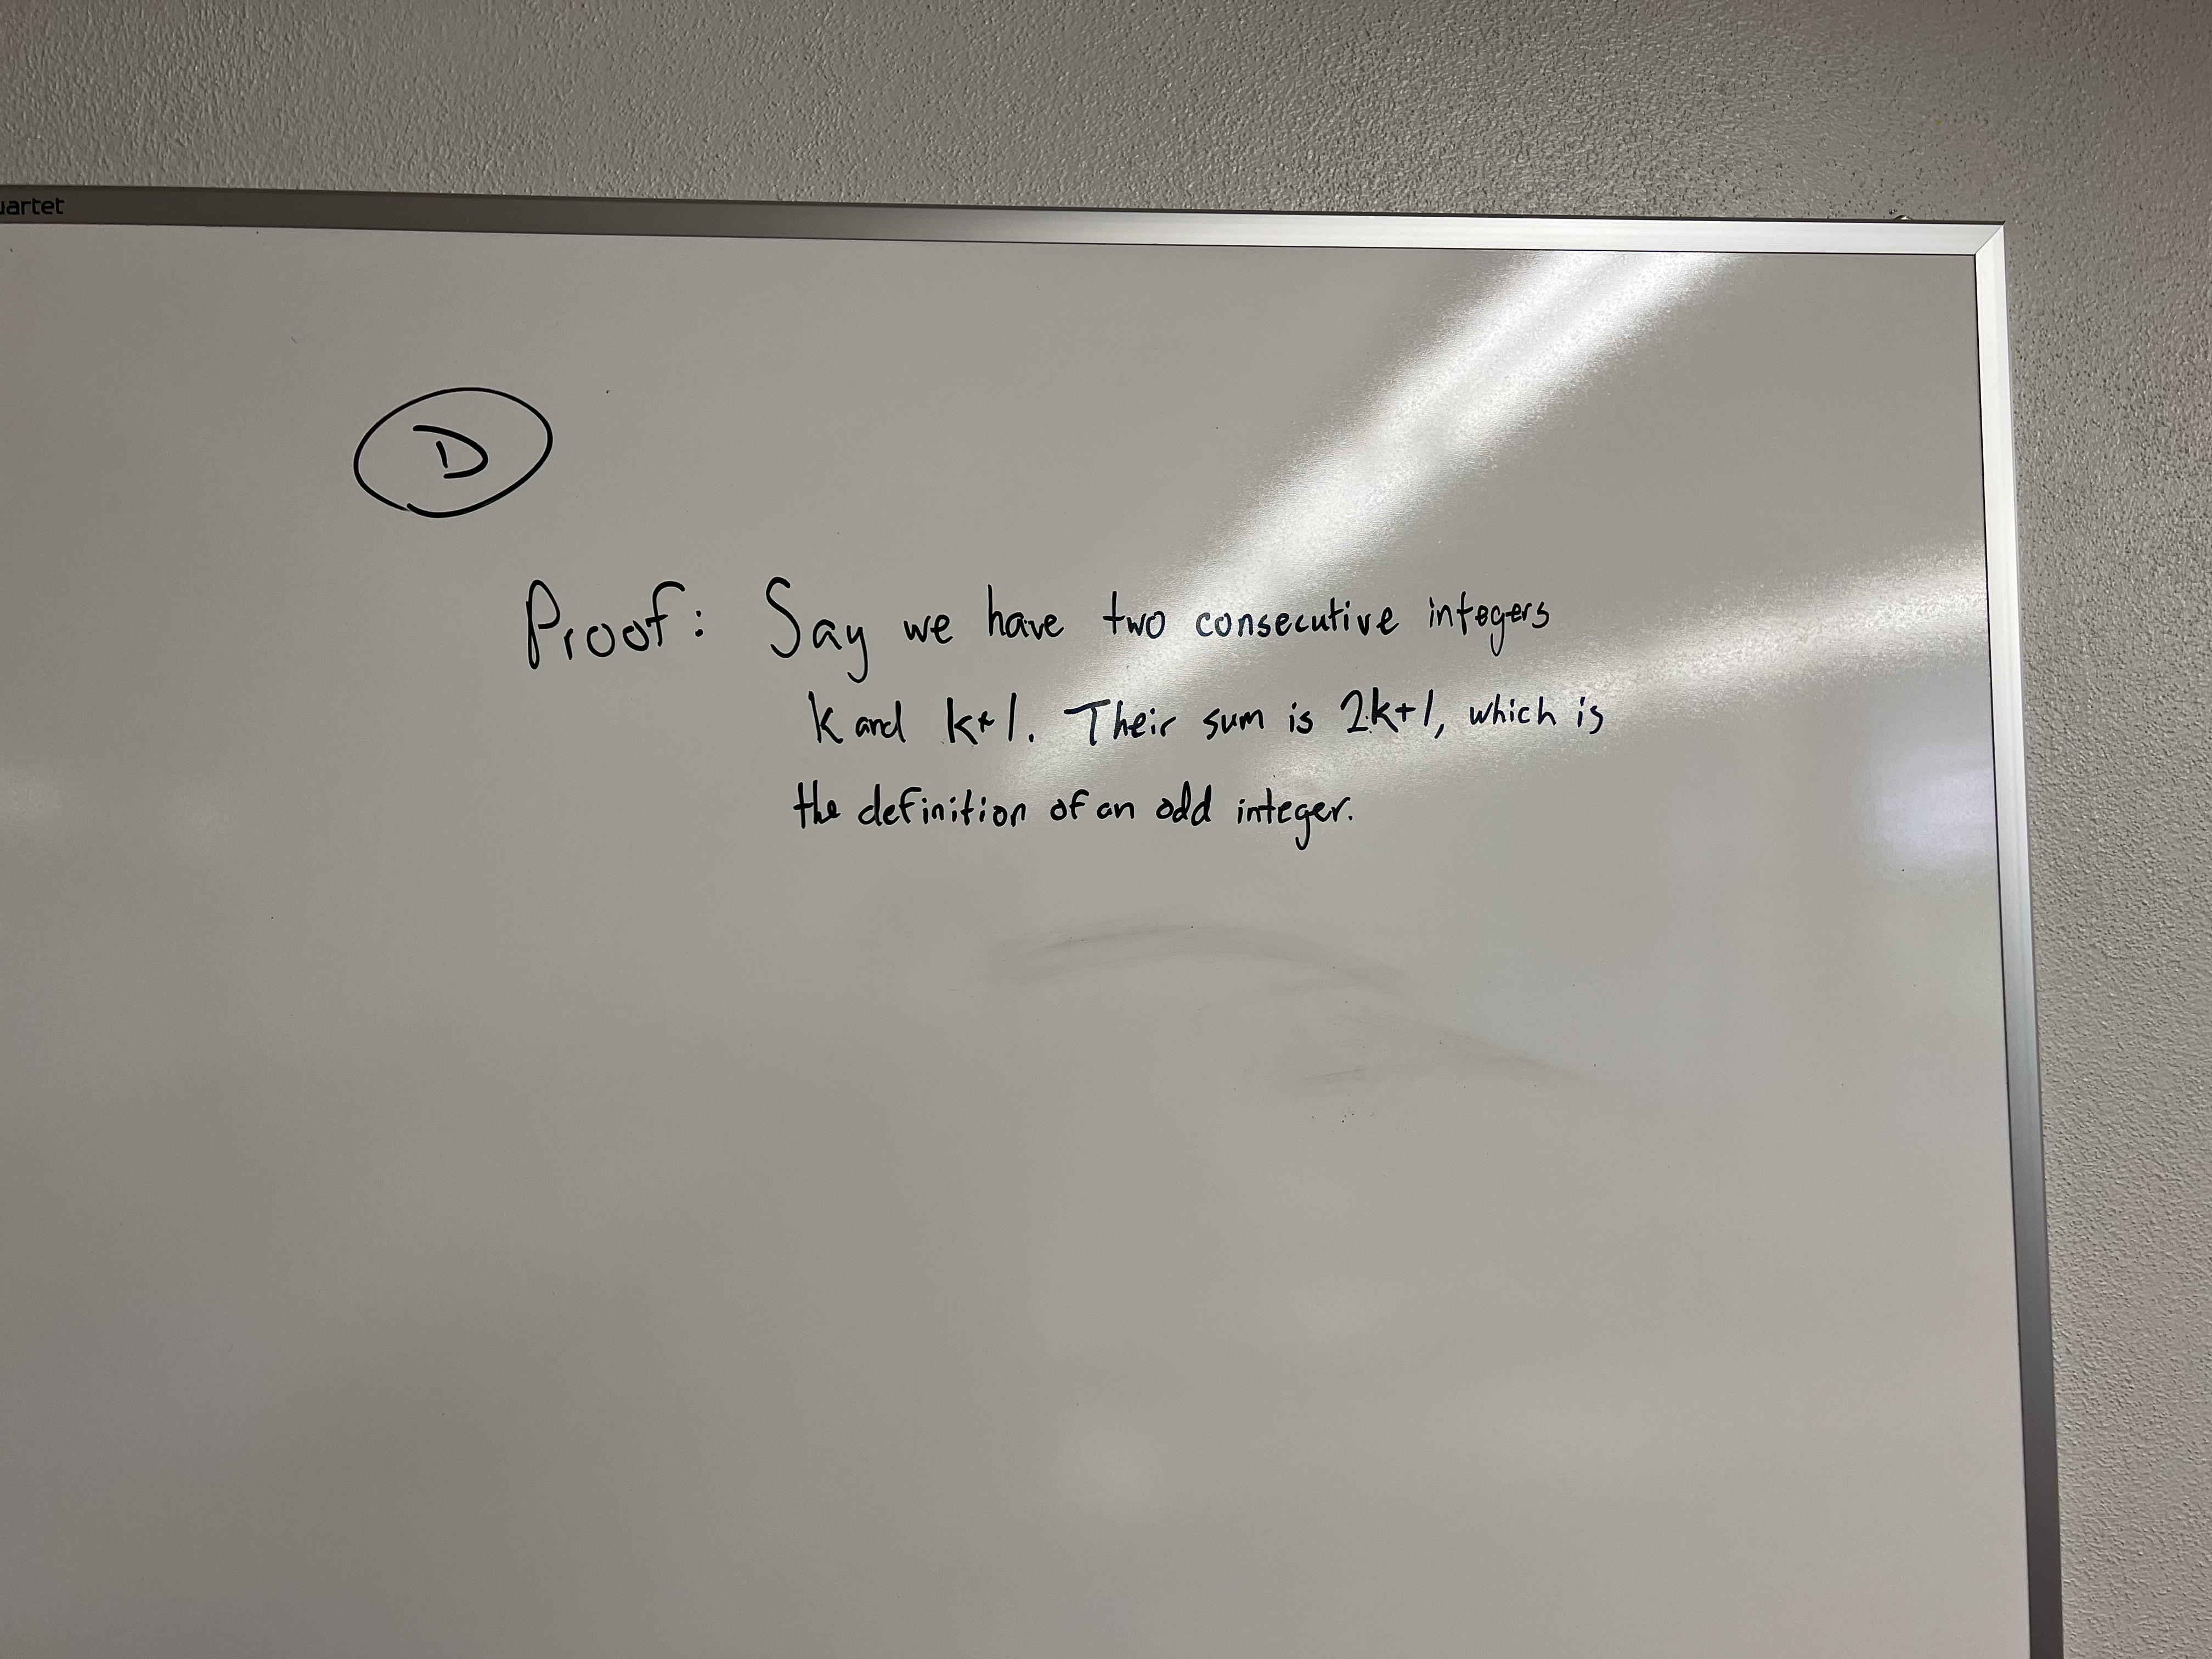 uartet
D
Proof: Say we have two consecutive integers
k and k+1. Their sum is 2k+1, which is
the definition of an odd integer.